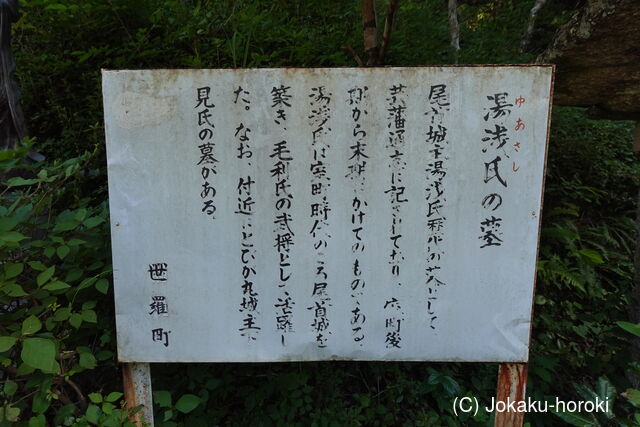 湯浅氏の墓
ゆあさし
尾首城主湯浅氏歴代の墓として、
芸藩通志に記されており、室町後
期から末期にかけてのものである。
湯浅氏は室町時代のころ尾首城を
築き、毛利氏の武将として活躍し
た。なお、付近にとびが丸城の主
見氏の墓がある。
世羅町
(C) Jokaku-horoki